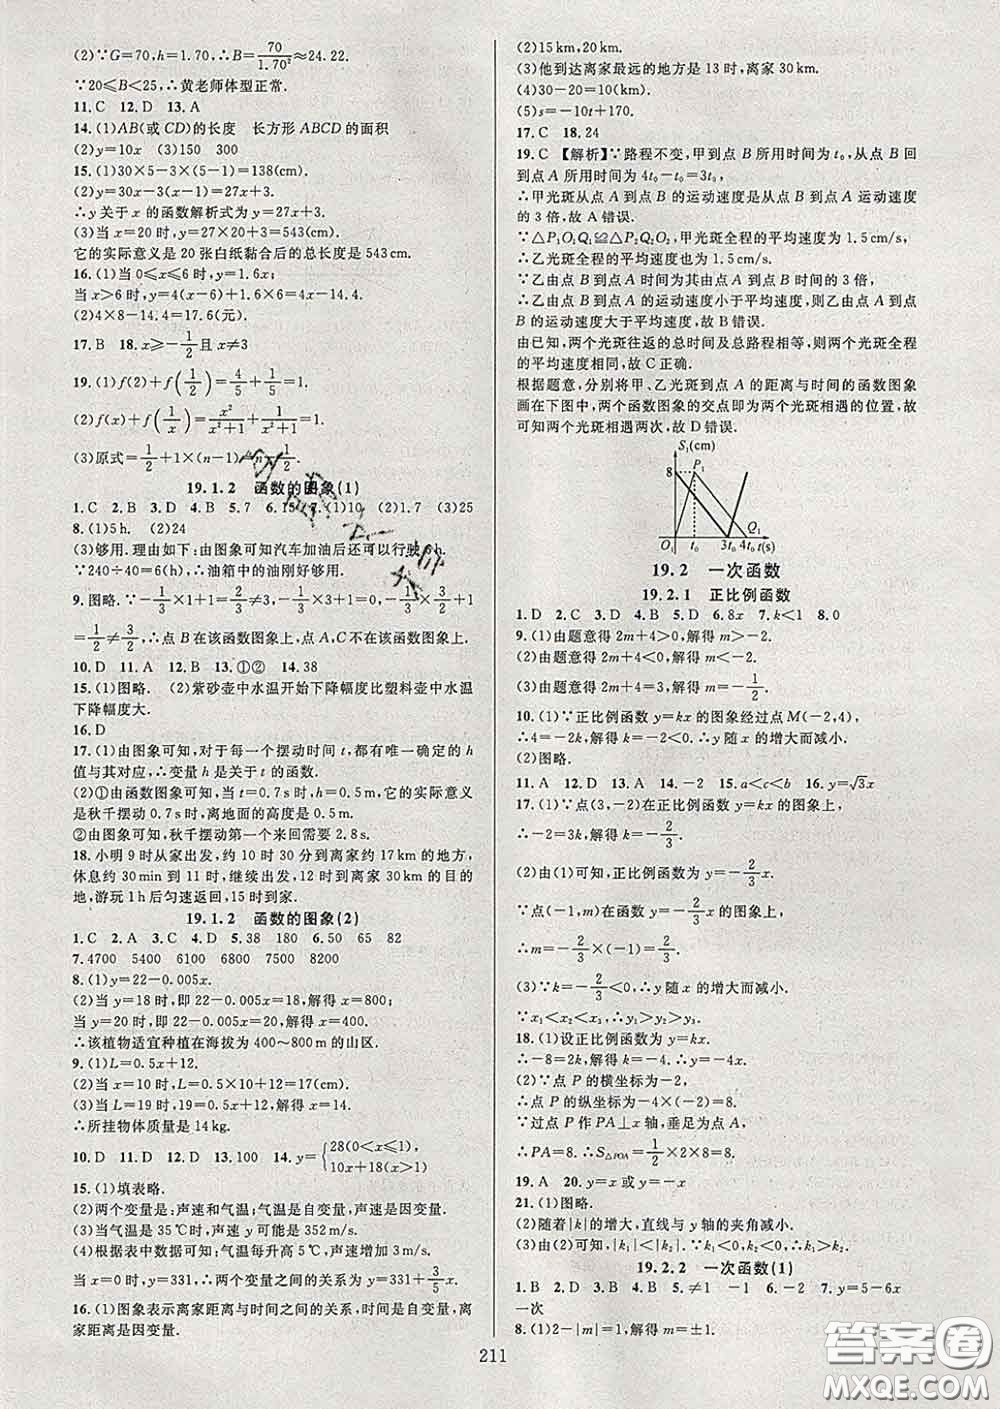 (2)∵G=70,h=1.70,∴B=70/1.70²≈24.22.
∵20≤B<25,∴黄老师体型正常.
11.C 12.D 13.A
14.(1)AB(或CD)的长度 长方形ABCD的面积
(2)y=10x (3)150 300
15.(1)30×5-3×(5-1)=138(cm)
(2)y=30x-3(x-1)=27x+3.
∴y关于x的函数解析式为y=27x+3.
(3)当x=20时,y=27×20+3=543(cm)
它的实际意义是20张白纸黏合后的总长度是543cm.
16.(1)当0≤x≤6时,y=1.6x;
当x>6时,y=4(x-6)+1.6×6=4x-14.4.
(2)4×8-14.4=17.6(元).
17.B 18.x≥-1/2且x≠3
19.(1)f(2)+f(1/2)=4/5+1/5=1.
(2)f(x)+f(1/x)=x²/(x²+1)+1/(x²+1)=1.
(3)原式=1/2+1×(n-1)=n-1/2.
19.1.2 函数的图象(1)
1.C 2.B 3.D 4.B 5.7 6.15 7.(1)10 (2)1.7 (3)25
8.(1)5h. (2)24
(3)够用.理由如下:由图象可知汽车加油后还可以行驶6h.
∵240÷40=6(h),∴油箱中的油刚好够用.
9.图略.-1/3×1+1=2/3≠-1/3,-1/3×3/2+1
=1/2≠3/2,∴点B在该函数图象上,点A,C不在该函数图象上.
10.D 11.A 12.B 13.①② 14.38
15.(1)图略. (2)紫砂壶中水温开始下降幅度比塑料壶中水温
下降幅度大.
16.D
17.(1)由图象可知,对于每一个摆动时间t,都有唯一确定的h
值与其对应,∴变量h是关于t的函数.
(2)①由函数图象可知,当t=0.7s时,h=0.5m,它的实际意义
是秋千摆动0.7s时,离地面的高度是0.5m.
②由图象可知,秋千摆动第一个来回需要2.8s.
18.小明9时从家出发,约10时30分到离家约17km的地方,
休息约30min到11时,继续出发,12时到离家30km的目的
地,游玩1h后匀速返回,15时到家.
19.1.2 函数的图象(2)
1.C 2.A 3.C 4.D 5.38 180 6.50 65 82
7.4700 5400 6100 6800 7500 8200
8.(1)y=22-0.005x.
(2)当y=18时,即22-0.005x=18,解得x=800;
当y=20时,即22-0.005x=20,解得x=400.
∴该植物适宜种植在海拔为400~800m的山区.
9.(1)L=0.5x+12.
(2)当x=10时,L=0.5×10+12=17(cm)
(3)当L=19时,19=0.5x+12,解得x=14.
∴所挂物体质量是14kg.
10.D 11.D 12.D 13.100 14.y={28(0<x≤1),
10x+18(x>1)
15.(1)填表略.
(2)两个变量是:声速和气温;气温是自变量,声速是因变量.
(3)当气温是35℃时,声速y可能是352m/s.
(4)根据表中数据可知:气温每升高5℃,声速增加3m/s.
当x=0时,y=331,∴两个变量之间的关系式为y=331+3/5x.
16.(1)图象表示离家距离与时间之间的关系,时间是自变量,离
家距离是因变量.
(2)15km,20km.
(3)他到达离家最远的地方是13时,离家30km.
(4)30-20=10(km).
(5)s=-10t+170.
17.C 18.24
19.C 【解析】∵路程不变,甲到点B所用时间为t₀,从点B回
到点A所用时间为4t₀-t₀=3t₀,
∴甲光斑从点A到点B的运动速度是从点B到点A运动速度
的3倍,故A错误.
∵△P₁O₁Q₁≌△P₂Q₂O₂,甲光斑全程的平均速度为1.5cm/s,
∴乙光斑全程的平均速度也为1.5cm/s.
∴乙由点B到点A时间为其由点A到点B时间的3倍,
∴乙由点B到点A的运动速度小于平均速度,则乙由点A到点
B的运动速度大于平均速度,故B错误.
由已知,两个光斑往返的总时间及总路程相等,则两个光斑全程
的平均速度相同,故C正确.
根据题意,分别将甲、乙光斑到点A的距离与时间的函数图象
画在下图中,两个函数图象的交点即为两个光斑相遇的位置,故
可知两个光斑相遇两次,故D错误.
S₁(cm)
8 P₁
Q₁
O₁ t₀ 3t₀ 4t₀ t(s)
19.2 一次函数
19.2.1 正比例函数
1.D 2.C 3.D 4.B 5.D 6.8x 7.k<1 8.0
9.(1)由题意得2m+4>0,解得m>-2.
(2)由题意得2m+4<0,解得m<-2.
(3)由题意得2m+4=3,解得m=-1/2.
10.(1)∵正比例函数y=kx的图象经过点M(-2,4),
∴4=-2k,解得k=-2.∴y随x的增大而减小.
(2)图略.
11.A 12.D 13.A 14.-2 15.a<c<b 16.y=√3x
17.(1)∵点(3,-2)在正比例函数y=kx的图象上,
∴-2=3k,解得k=-2/3.
(2)由(1)可知,正比例函数y=-2/3x.
∵点(-1,m)在函数y=-2/3x的图象上,
∴m=-2/3×(-1)=2/3.
(3)∵k=-2/3<0,∴y随x的增大而减小.
∵x₁<x₂<x₃,∴y₁>y₂>y₃.
18.(1)设正比例函数为y=kx.
∴-8=2k,解得k=-4.∴y=-4x.
(2)∵点P的横坐标为-2.
∴点P的纵坐标为-4×(-2)=8.
∵过点P作PA⊥x轴,垂足为点A,
∴PA=8.∴S△POA=1/2×2×8=8.
19.A 20.y=x或y=-x
21.(1)图略.
(2)随着|k|的增大,直线与y轴的夹角减小.
(3)由(2)可知,|k₁|<|k₂|.∵k₁<0,k₂<0,∴k₁>k₂.
19.2.2 一次函数(1)
1.B 2.C 3.D 4.B 5.≠1 -1 6.-2 7.y=-6x
一次
8.(1)2-|m|=1,解得m=±1.
211
答案圈
MXQE.COM